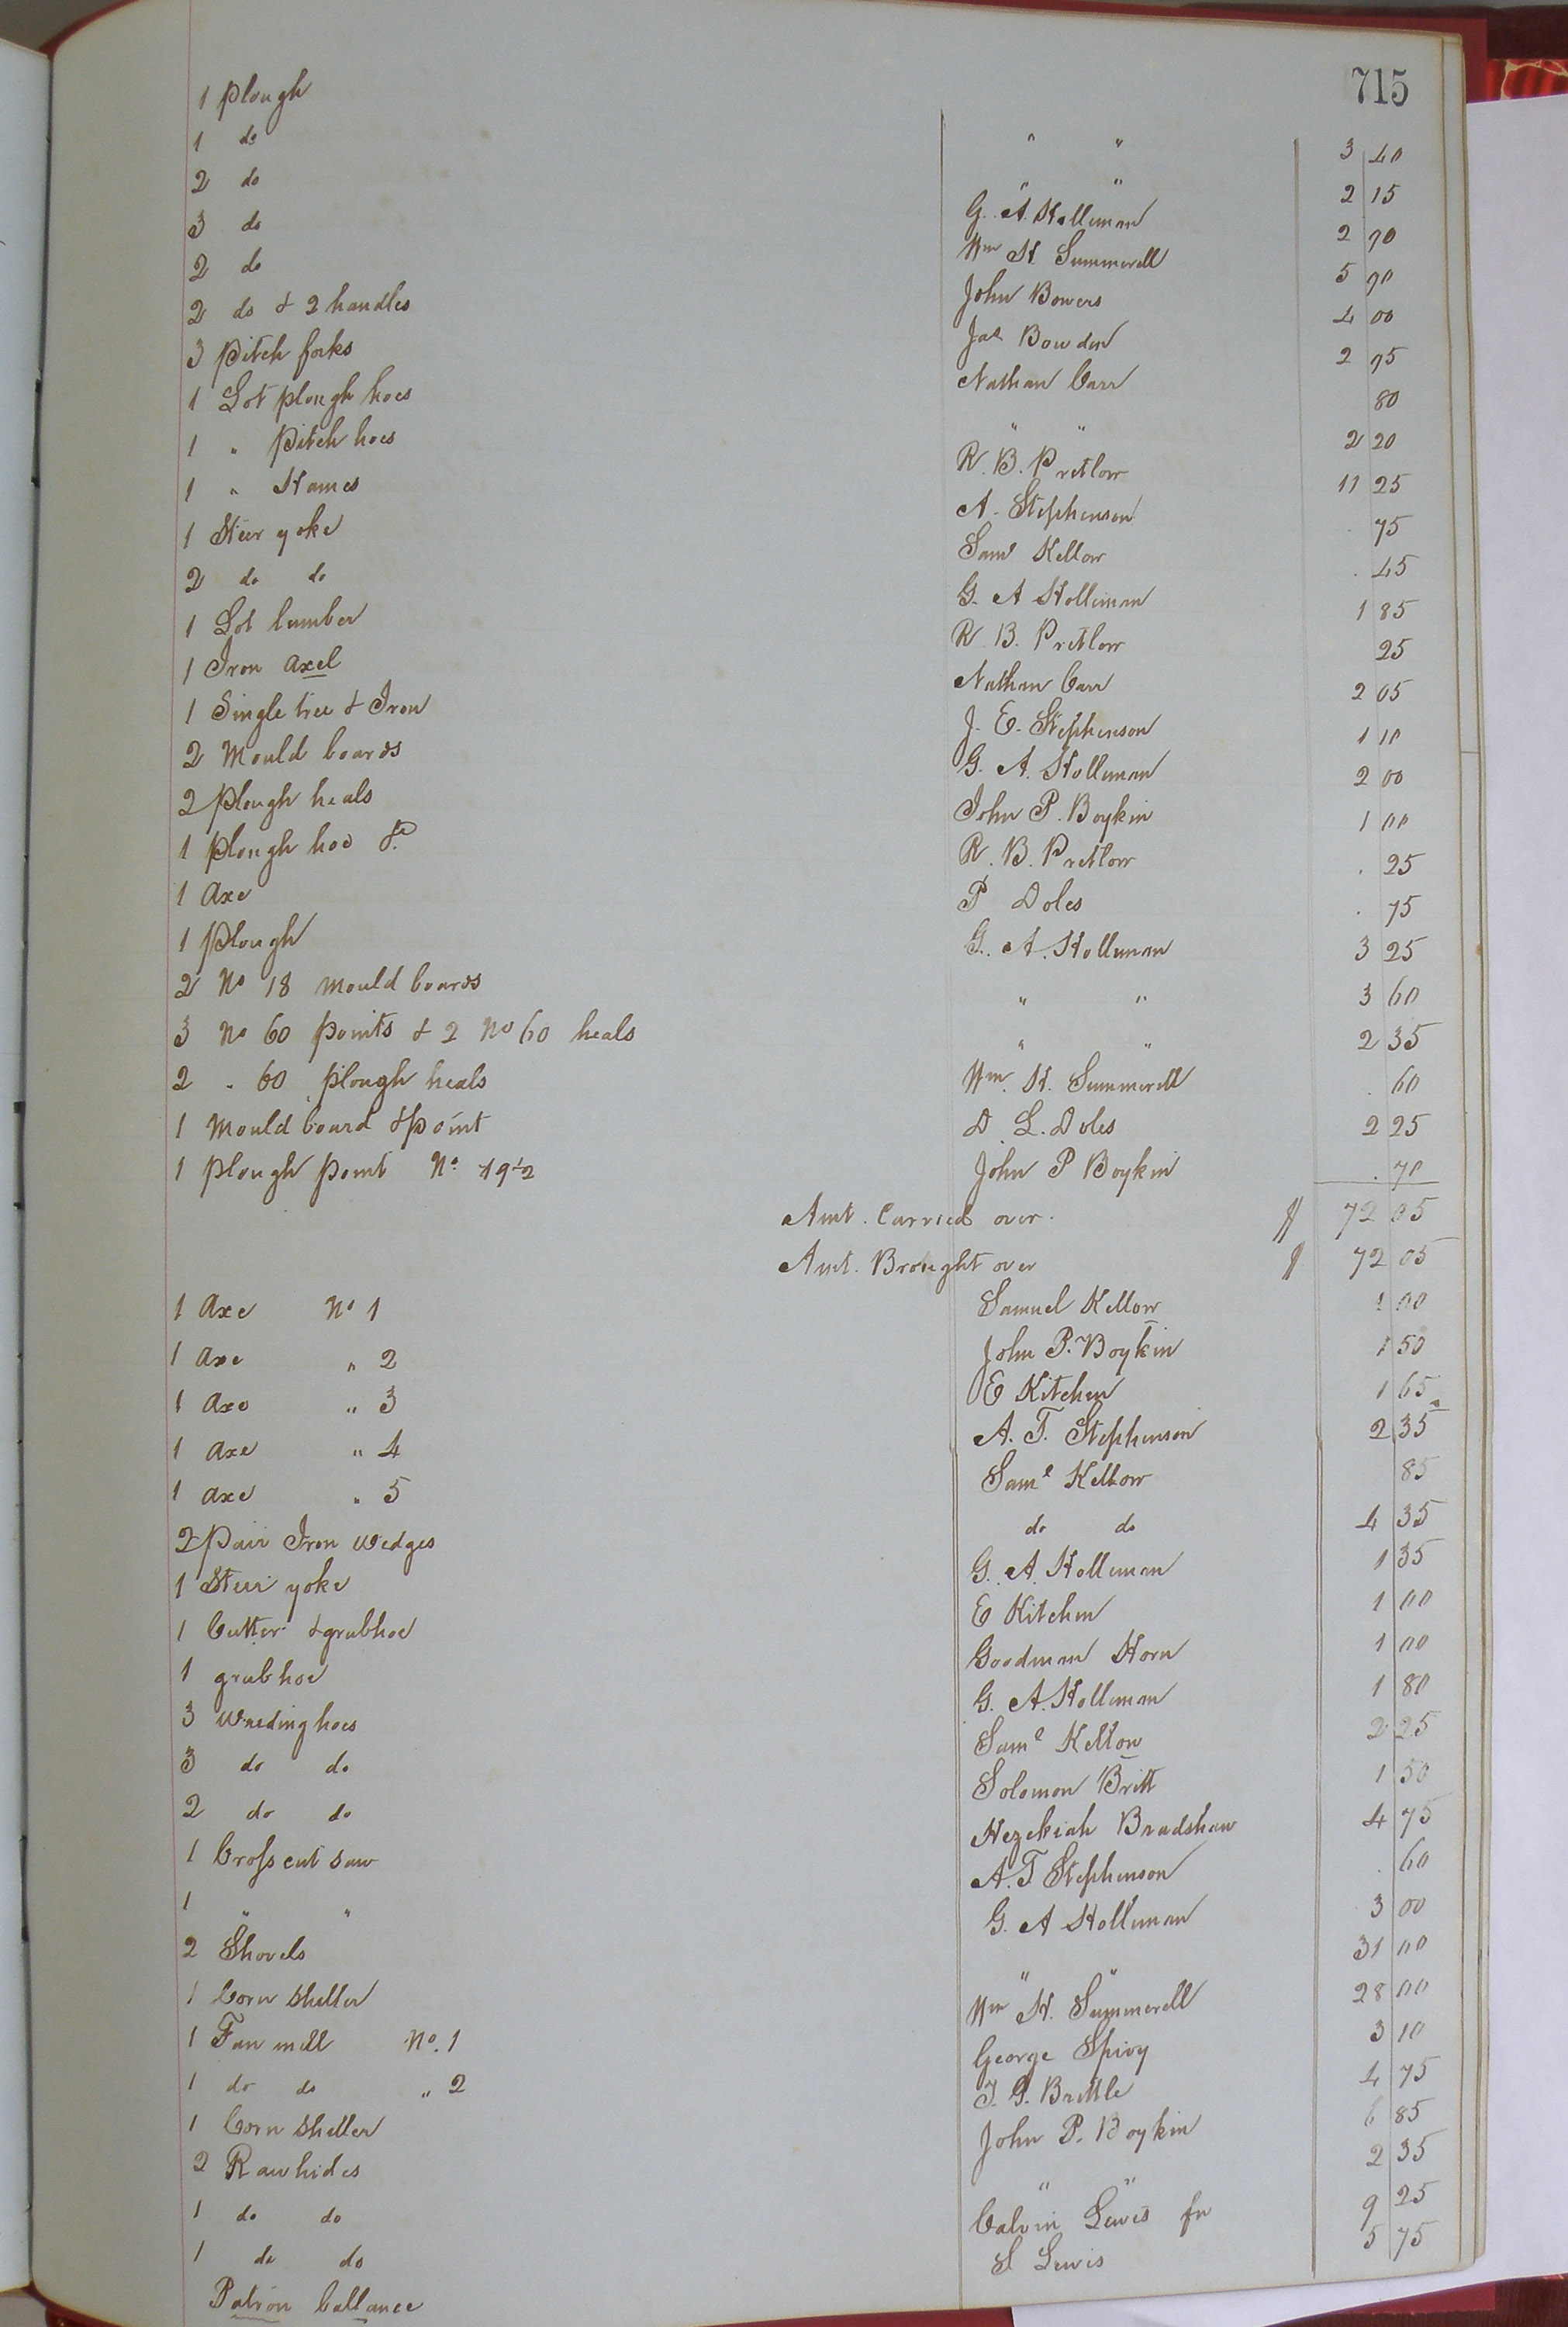 715
1 plough " " 3 40
1 do " " 2 15
2 do G. A. Holleman 2 70
3 do Wm H. Summerell 5 70
2 do John Bowers 4 00
2 do & 2 handles Jas Bowden 2 75
3 Pitch forks Nathan Carr 80
1 Lot plough hoes " " 2 20
1 " Pitch hoes R. B. Pretlow 11 25
1 " Hames A. Stephenson 75
1 Steer yoke Saml Kellow 45
2 do do G. A Holleman 1 85
1 Lot lumber R. B. Pretlow 25
1 Iron axel Nathan Carr 2 05
1 Single tree & Iron J. E. Stephenson 1 10
2 Mould boards G. A. Holleman 2 00
2 plough heals John P. Boykin 1 00
1 plough hoe &c R. B. Pretlow 25
1 Axe P Doles 75
1 Plough G. A. Holleman 3 25
2 No 18 mould boards " " 3 60
3 No 60 points & 2 No 60 heals " " 2 35
2 " 60 plough heals Wm. H. Summerell 60
1 Mould board & point D. L. Doles 2 25
1 plough point No. 19½ John P Boykin 70
Amt. Carried over. $ 72 05
Amt. Brought over $ 72 05
1 Axe No 1 Samuel Kellow 1 00
1 Axe " 2 John P. Boykin 1 50
1 Axe " 3 E Kitchen 1 65
1 Axe " 4 A. T. Stephenson 2 35
1 Axe " 5 Saml Kellow 85
2 pair Iron wedges do do 4 35
1 Steer yoke G. A. Holleman 1 35
1 Cutter & grubhoe E Kitchen 1 00
1 grubhoe Goodman Horn 1 00
3 weeding hoes G. A. Holleman 1 80
3 do do Saml Kellow 2 25
2 do do Solomon Britt 1 50
1 Cross cut saw Hezekiah Bradshaw 4 75
1 " " A. T Stephenson 60
2 Shovels G. A Holleman 3 00
1 Corn sheller " " 31 00
1 Fan mill No. 1 Wm H. Summerell 28 00
1 do do " 2 George Spivy 3 10
1 Corn sheller J. G. Brittle 4 75
2 Raw hides John P. Boykin 6 85
1 do do " " 2 35
1 do do Calvin Lewis fn 9 25
Patron ballance S Lewis 5 75